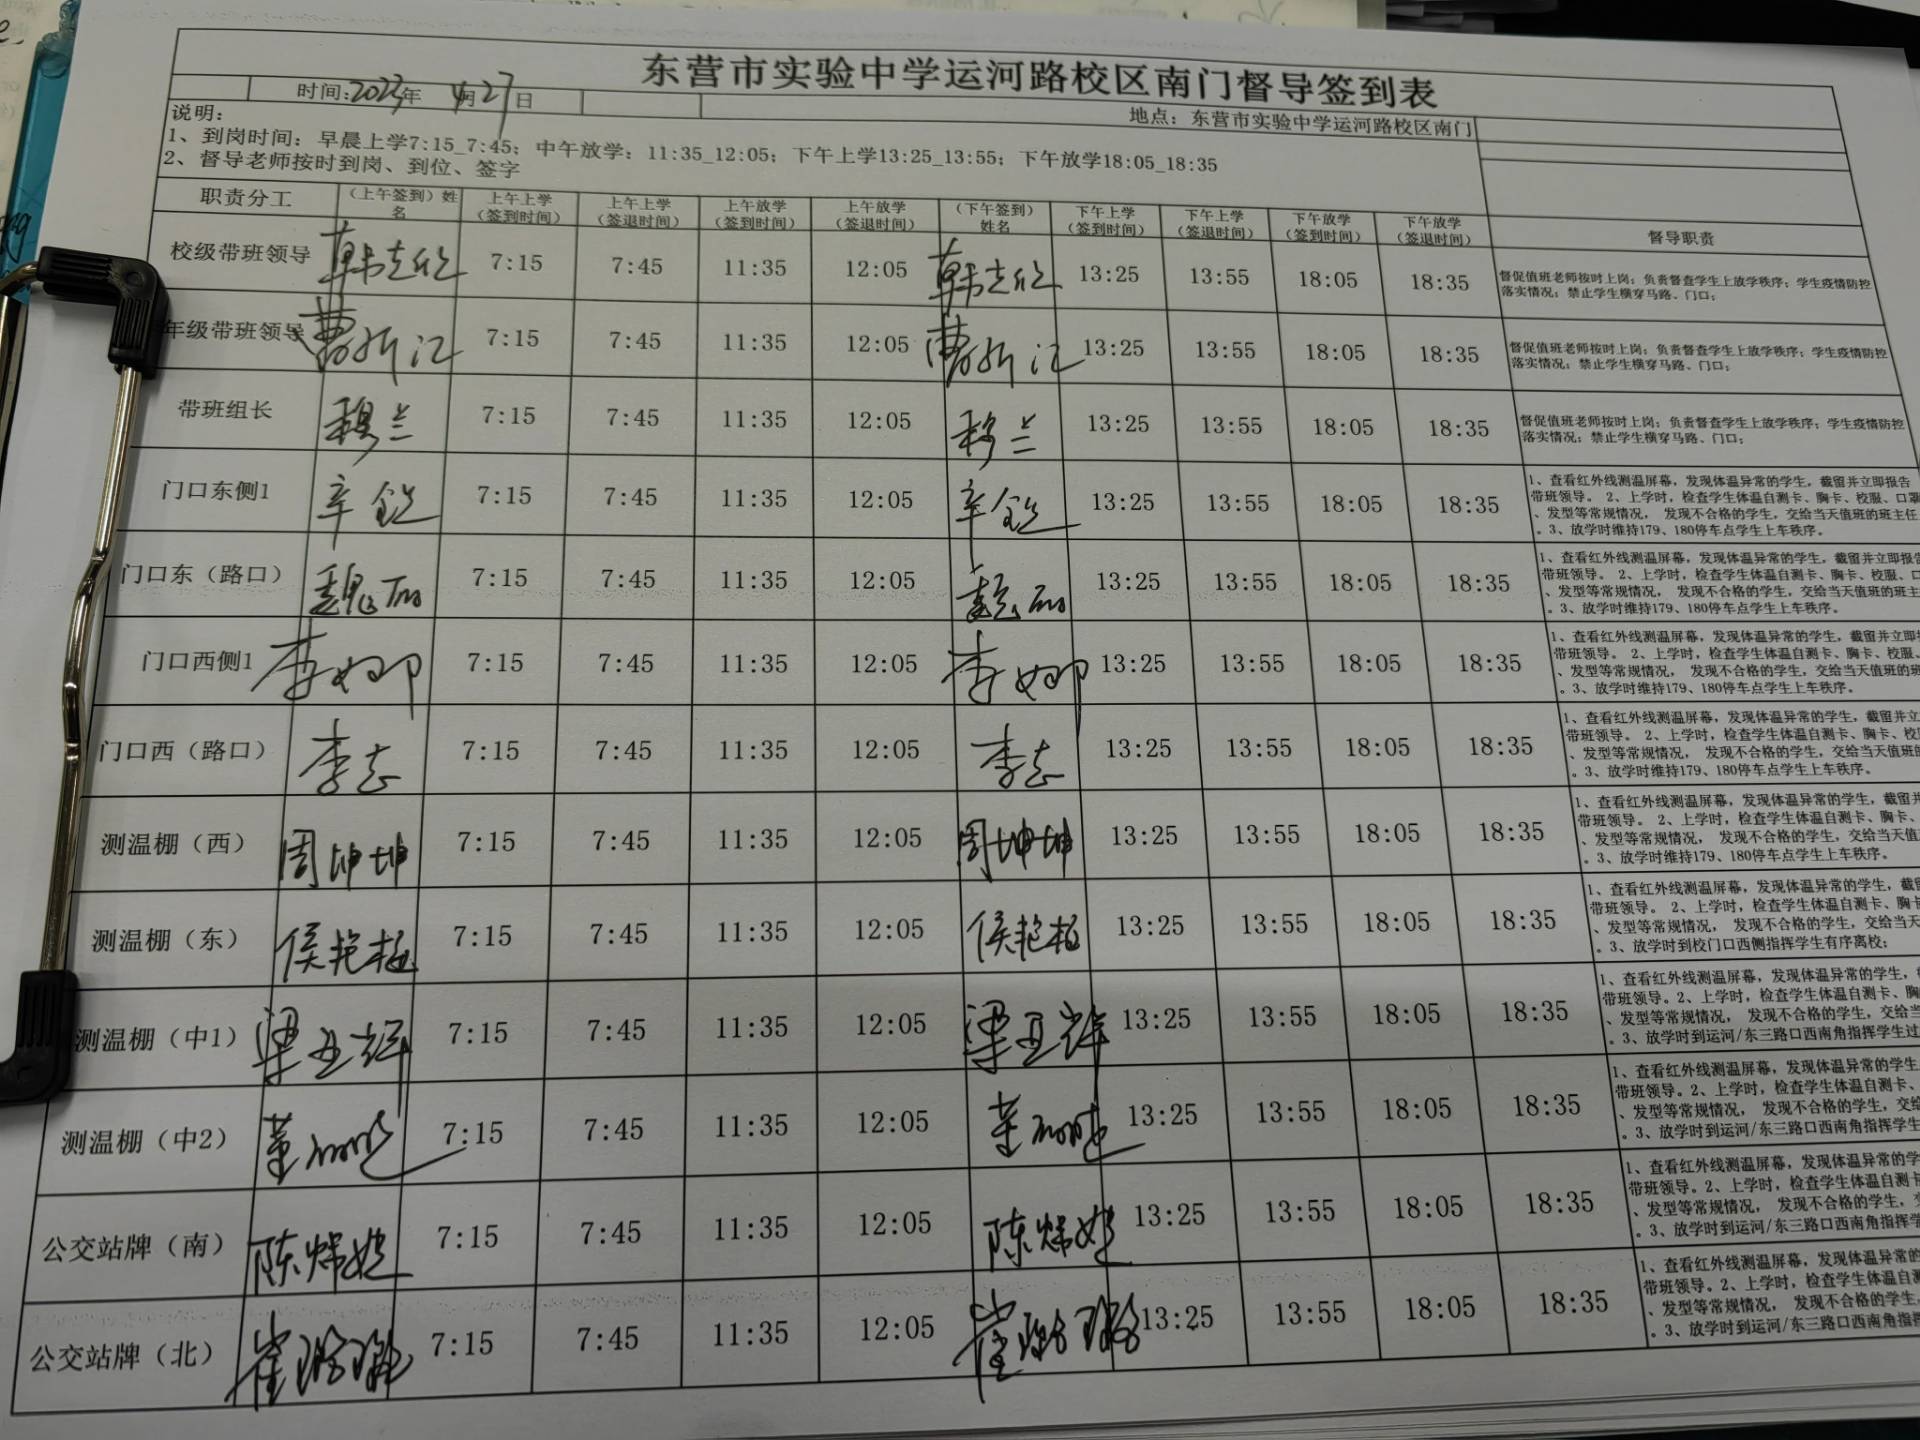 东营市实验中学运河路校区南门督导签到表
时间:2023年 4月27日
地点：东营市实验中学运河路校区南门
说明：
1、到岗时间：早晨上学7:15_7:45；中午放学：11:35_12:05；下午上学13:25_13:55；下午放学18:05_18:35
2、督导老师按时到岗、到位、签字
职责分工 （上午签到）姓名 上午上学（签到时间） 上午上学（签退时间） 上午放学（签到时间） 上午放学（签退时间） （下午签到）姓名 下午上学（签到时间） 下午上学（签退时间） 下午放学（签到时间） 下午放学（签退时间） 督导职责
校级带班领导 7:15 7:45 11:35 12:05 13:25 13:55 18:05 18:35 督促值班老师按时上岗；负责督查学生上放学秩序；学生疫情防控
落实情况；禁止学生横穿马路、门口；
年级带班领导 7:15 7:45 11:35 12:05 13:25 13:55 18:05 18:35 督促值班老师按时上岗；负责督查学生上放学秩序；学生疫情防控
落实情况；禁止学生横穿马路、门口；
带班组长 穆兰 7:15 7:45 11:35 12:05 穆兰 13:25 13:55 18:05 18:35 督促值班老师按时上岗；负责督查学生上放学秩序；学生疫情防控
落实情况；禁止学生横穿马路、门口；
门口东侧1 7:15 7:45 11:35 12:05 13:25 13:55 18:05 18:35 1、查看红外线测温屏幕，发现体温异常的学生，截留并立即报告
带班领导。 2、上学时，检查学生体温自测卡、胸卡、校服、口罩
、发型等常规情况， 发现不合格的学生，交给当天值班的班主任
。3、放学时维持179、180停车点学生上车秩序。
门口东（路口） 魏丽 7:15 7:45 11:35 12:05 魏丽 13:25 13:55 18:05 18:35 1、查看红外线测温屏幕，发现体温异常的学生，截留并立即报告
带班领导。 2、上学时，检查学生体温自测卡、胸卡、校服、口
、发型等常规情况， 发现不合格的学生，交给当天值班的班主
。3、放学时维持179、180停车点学生上车秩序。
门口西侧1 7:15 7:45 11:35 12:05 13:25 13:55 18:05 18:35 1、查看红外线测温屏幕，发现体温异常的学生，截留并立即报
带班领导。 2、上学时，检查学生体温自测卡、胸卡、校服、
、发型等常规情况， 发现不合格的学生，交给当天值班的班
。3、放学时维持179、180停车点学生上车秩序。
门口西（路口） 李志 7:15 7:45 11:35 12:05 李志 13:25 13:55 18:05 18:35 1、查看红外线测温屏幕，发现体温异常的学生，截留并立
带班领导。 2、上学时，检查学生体温自测卡、胸卡、校服
、发型等常规情况， 发现不合格的学生，交给当天值班的
。3、放学时维持179、180停车点学生上车秩序。
测温棚（西） 周坤坤 7:15 7:45 11:35 12:05 周坤坤 13:25 13:55 18:05 18:35 1、查看红外线测温屏幕，发现体温异常的学生，截留并
带班领导。 2、上学时，检查学生体温自测卡、胸卡、
、发型等常规情况， 发现不合格的学生，交给当天值
。3、放学时维持179、180停车点学生上车秩序。
测温棚（东） 7:15 7:45 11:35 12:05 13:25 13:55 18:05 18:35 1、查看红外线测温屏幕，发现体温异常的学生，截留
带班领导。 2、上学时，检查学生体温自测卡、胸卡
、发型等常规情况， 发现不合格的学生，交给当天
。3、放学时到校门口西侧指挥学生有序离校；
测温棚（中1） 梁亚辉 7:15 7:45 11:35 12:05 梁亚辉 13:25 13:55 18:05 18:35 1、查看红外线测温屏幕，发现体温异常的学生，
带班领导。2、上学时，检查学生体温自测卡、胸
、发型等常规情况， 发现不合格的学生，交给当
。3、放学时到运河/东三路口西南角指挥学生过
测温棚（中2） 7:15 7:45 11:35 12:05 13:25 13:55 18:05 18:35 1、查看红外线测温屏幕，发现体温异常的学生
带班领导。2、上学时，检查学生体温自测卡、
、发型等常规情况， 发现不合格的学生，交给
。3、放学时到运河/东三路口西南角指挥学生
公交站牌（南） 7:15 7:45 11:35 12:05 13:25 13:55 18:05 18:35 1、查看红外线测温屏幕，发现体温异常的学
带班领导。2、上学时，检查学生体温自测卡
、发型等常规情况， 发现不合格的学生，交
。3、放学时到运河/东三路口西南角指挥学
公交站牌（北） 7:15 7:45 11:35 12:05 13:25 13:55 18:05 18:35 1、查看红外线测温屏幕，发现体温异常的
带班领导。2、上学时，检查学生体温自测
、发型等常规情况， 发现不合格的学生，
。3、放学时到运河/东三路口西南角指挥